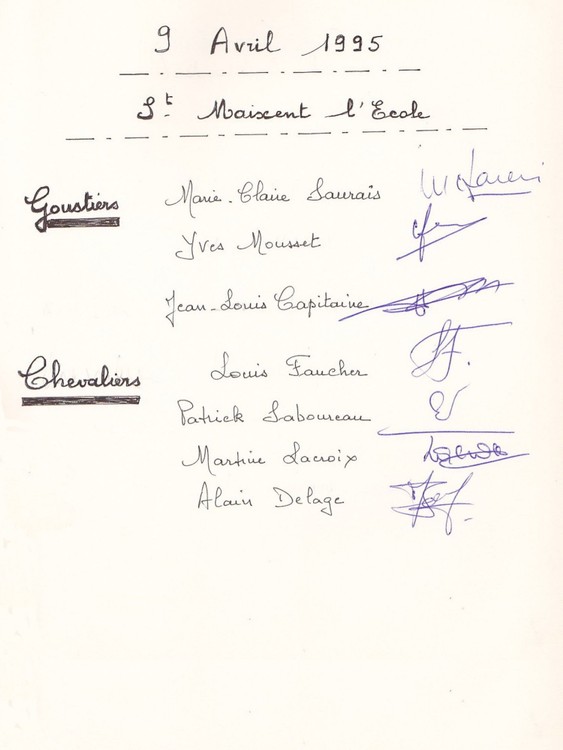 9 Avril 1995
St Maixent l'Ecole
Goustiers Marie-Claire Saurais
Yves Mousset
Jean-Louis Capitaine
Chevaliers Louis Faucher
Patrick Laboureau
Martine Lacroix
Alain Delage